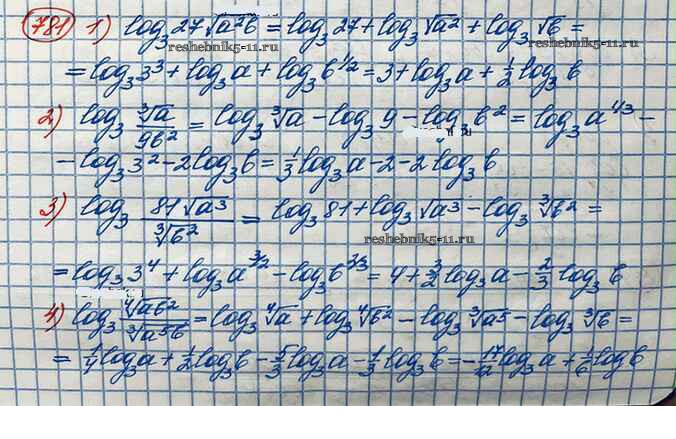 781 1) log₃27√(a²b) = log₃27 + log₃√a² + log₃√b =
reshebnik5-11.ru
= log₃3³ + log₃a + log₃b^(1/2) = 3 + log₃a + 1/2 log₃b
2) log₃ ∛a/(9b²) = log₃∛a − log₃9 − log₃b² = log₃a^(1/3) −
− log₃3² − 2log₃b = 1/3 log₃a − 2 − 2log₃b
3) log₃ 81√a³/∛b² = log₃81 + log₃√a³ − log₃∛b² =
reshebnik5-11.ru
= log₃3⁴ + log₃a^(3/2) − log₃b^(2/3) = 4 + 3/2 log₃a − 2/3 log₃b
4) log₃ ∜(ab²)/∛(a⁵b) = log₃∜a + log₃∜b² − log₃∛a⁵ − log₃∛b =
= 1/4 log₃a + 1/2 log₃b − 5/3 log₃a − 1/3 log₃b = −17/12 log₃a + 1/6 log b